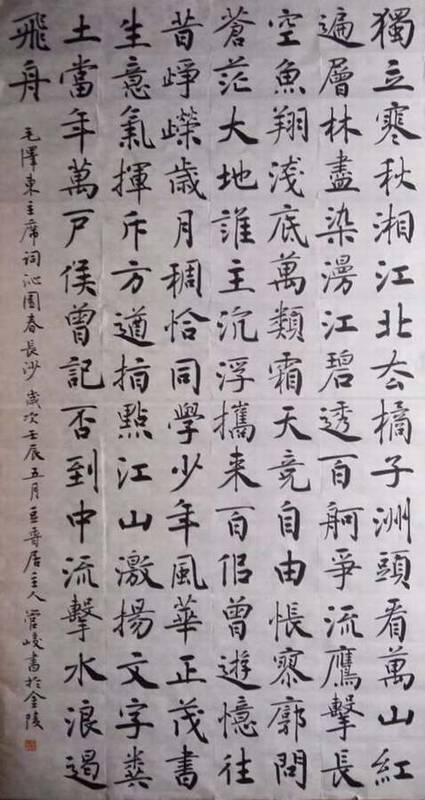 獨立寒秋湘江北去橘子洲頭看萬山紅
遍層林盡染漫江碧透百舸爭流鷹擊長
空魚翔淺底萬類霜天競自由悵寥廓問
蒼茫大地誰主沉浮攜来百侣曾遊憶往
昔崢嶸歲月稠恰同學少年風華正茂書
生意氣揮斥方遒指點江山激揚文字糞
土當年萬戶侯曾記否到中流擊水浪遏
飛舟
毛澤東主席詞沁園春長沙歲次壬辰五月居主人管峻書於金陵